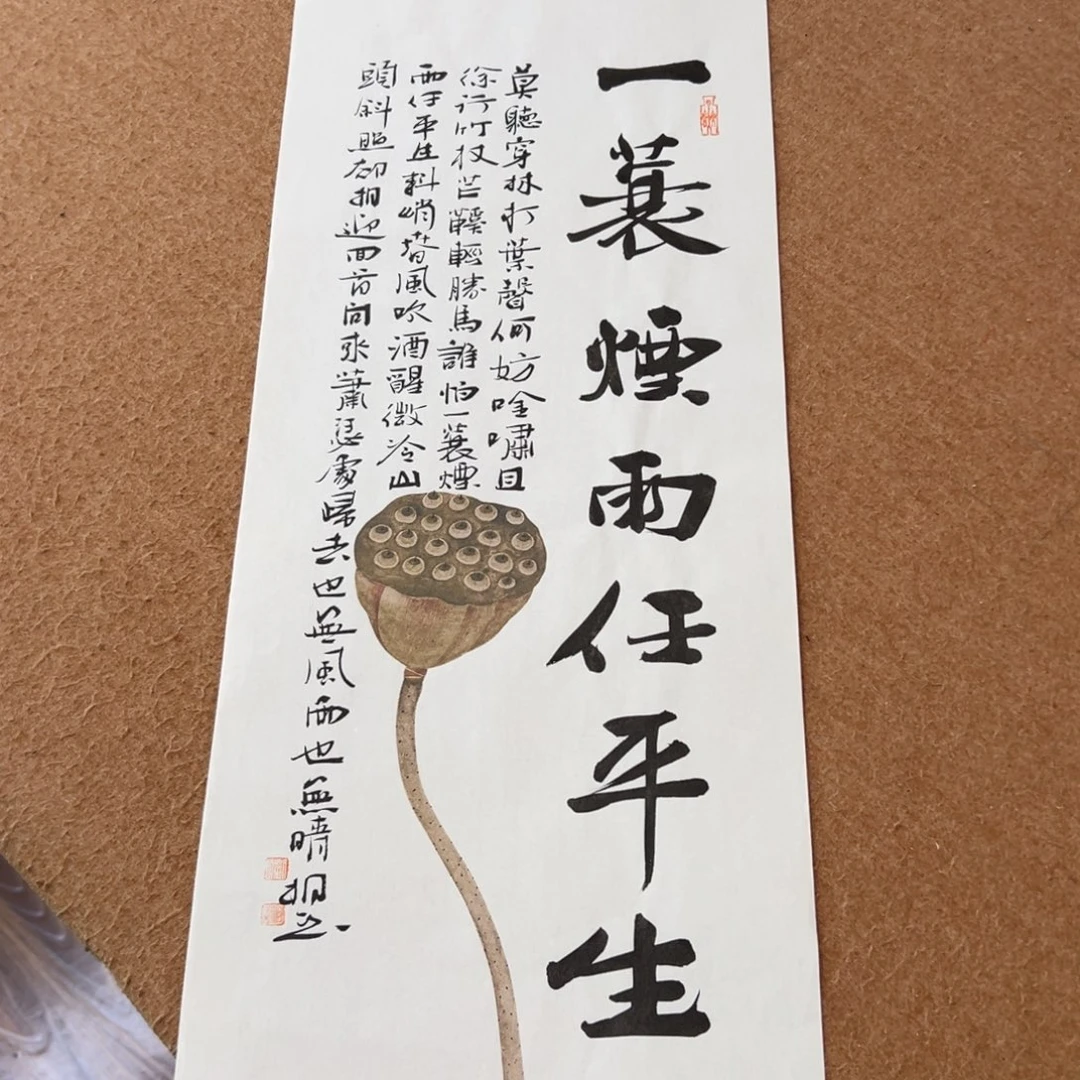 一蓑煙雨任平生
莫聽穿林打葉聲何妨唫嘯且
徐行竹杖芒鞵輕勝馬誰怕一蓑煙
雨任平生料峭春風吹酒醒微冷山
頭斜照却相迎回首向來蕭瑟處歸去也無風雨也無晴